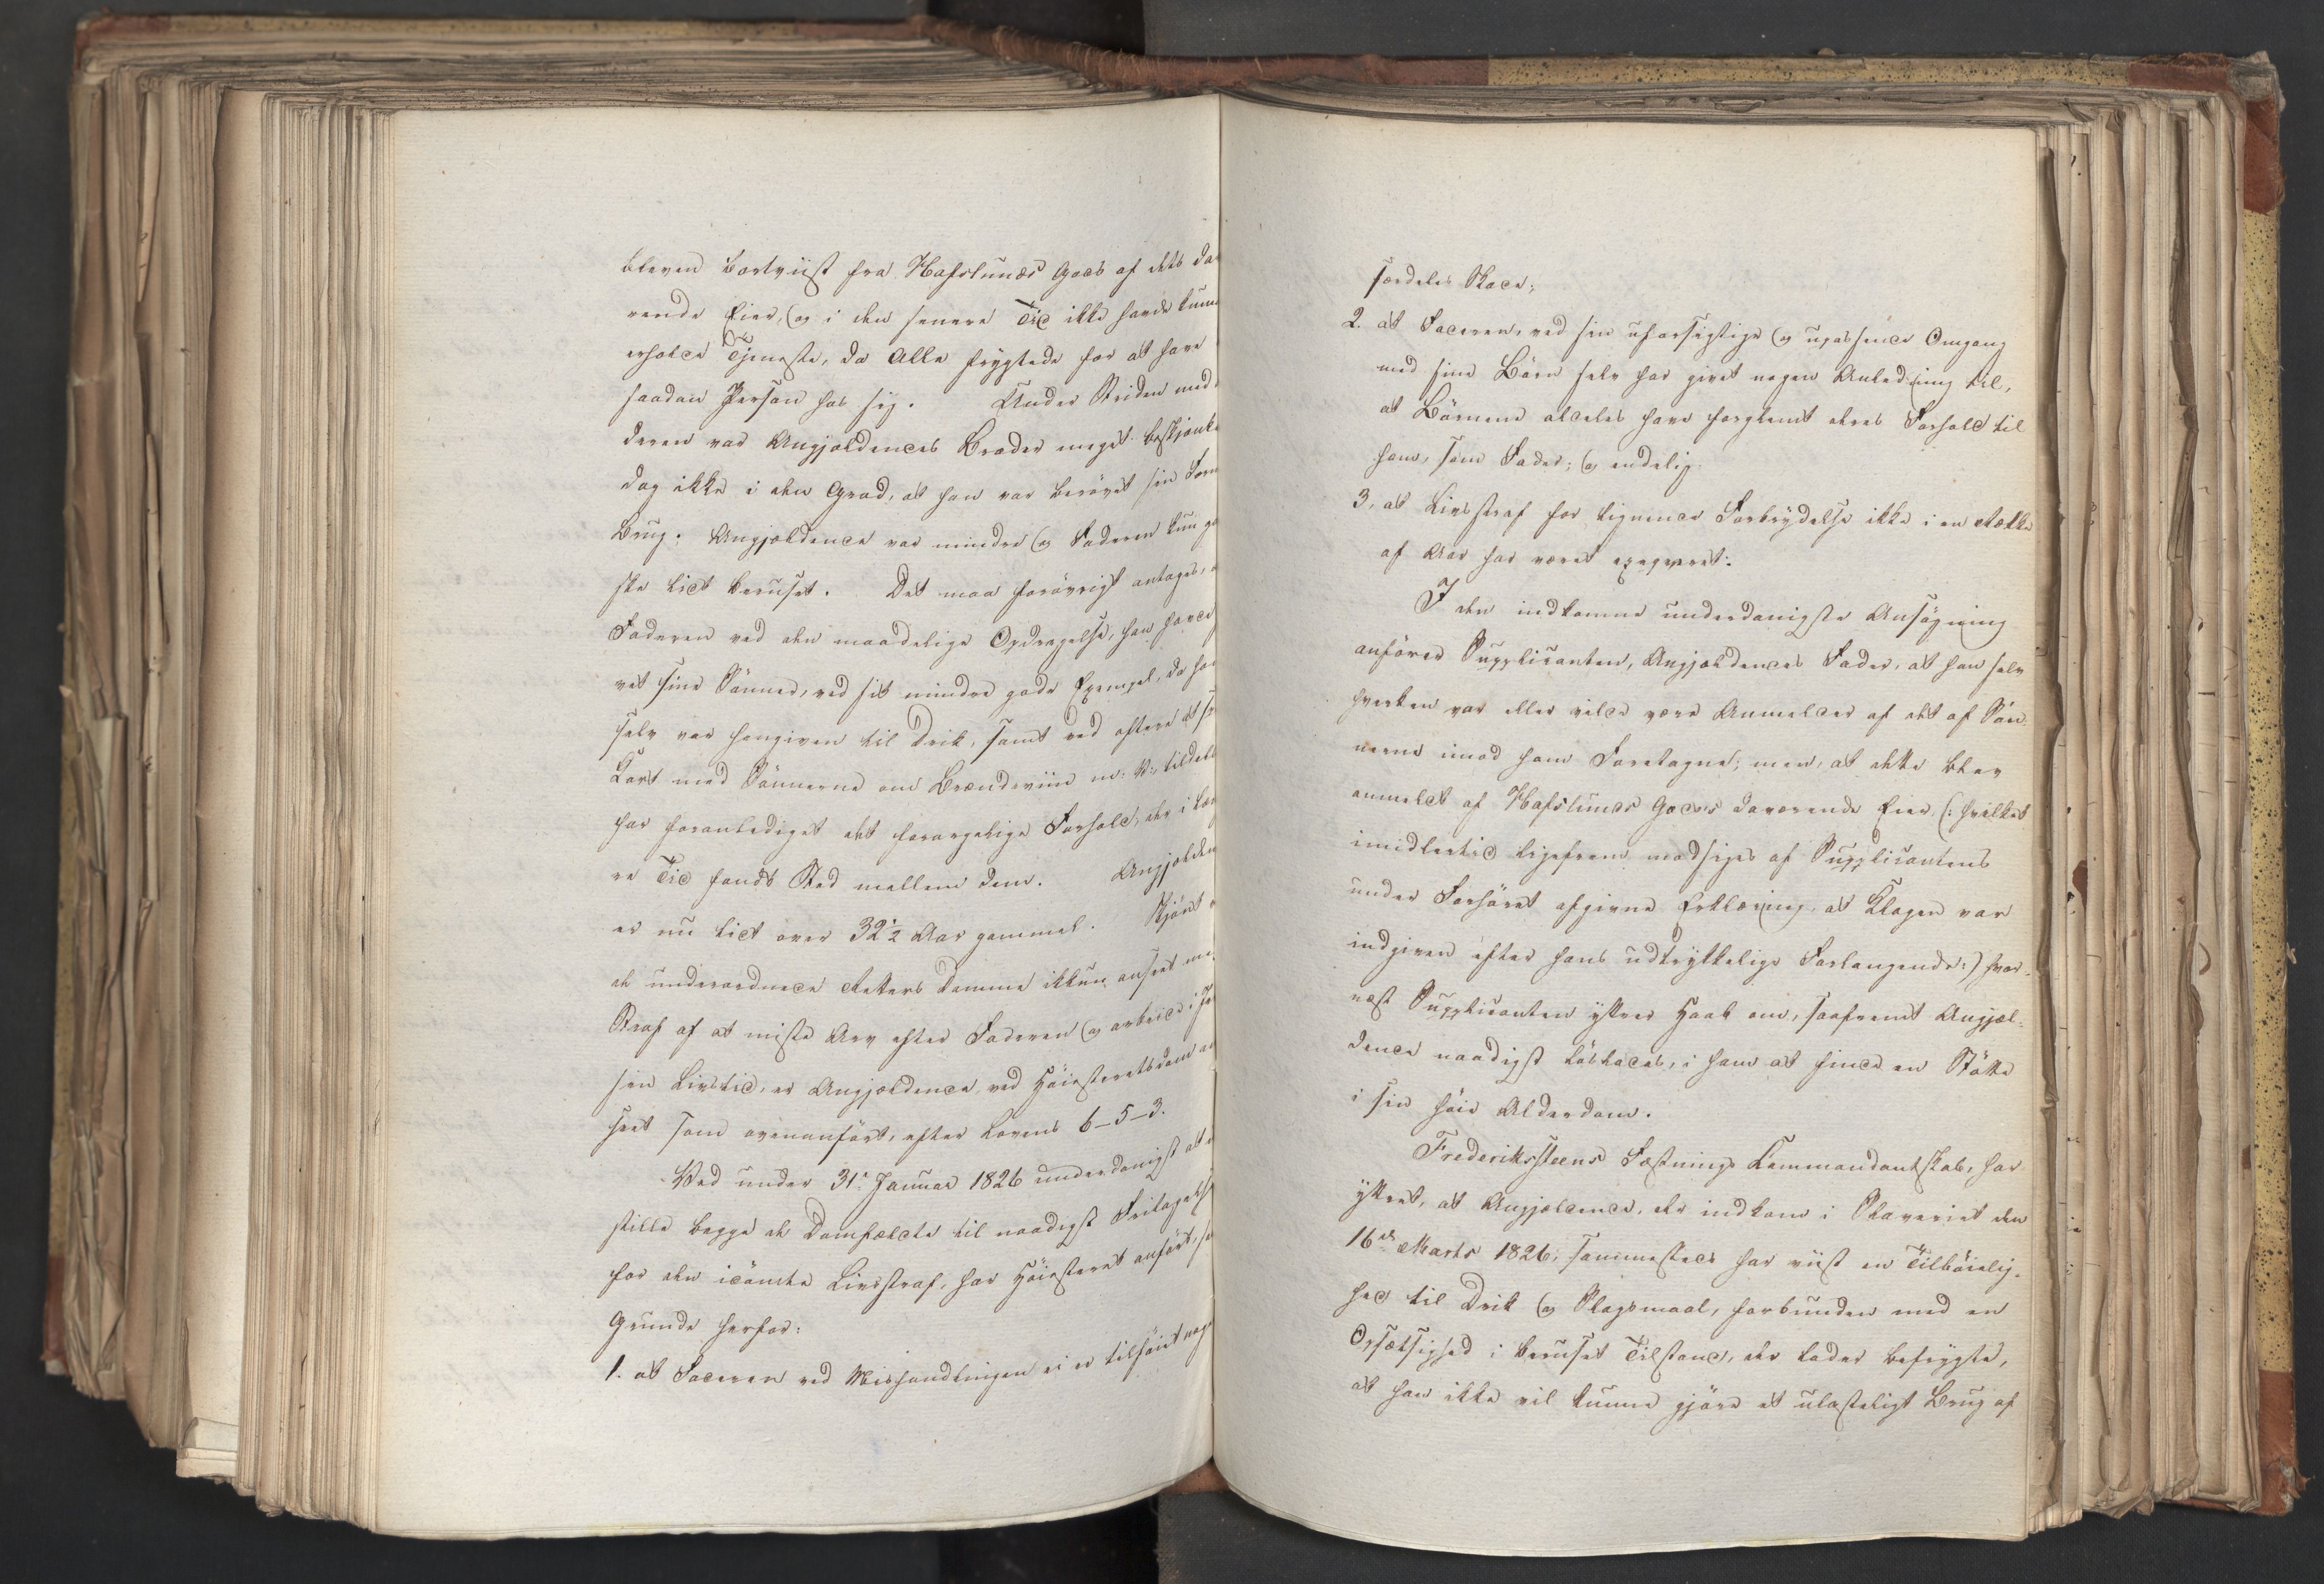 bleven bortviist fra Hafslunds Gods af dets da-
rende Eier, og i den senere Tid ikke havde kunn
erholde Tjeneste, da Alle frygtede for at have
saadan Person hos sig. Under Striden med
deren var Angjældendes Broder meget beskjænke
dog ikke i den Grad, at han var berövet sin Forn
Brug. Angjældende var mindre og Faderen kun ga
ske lidt beruset. Det maa forövrigt antages, a
Faderen ved den maadelige Opdragelse, han havde
vet sine Sönner, ved sit mindre gode Exempel, da han
selv var hengiven til Drik, samt ved oftere at sp
Kort med Sönnerne om Brændeviin m: V:, tildeels
har foranlediget det forargelige Forhold, der i læn
re Tid fandt Sted mellem dem. Angjælden
er nu lidt over 32½ Aar gammel. Skjönt
de underordnede Retters Domme ikkun anseet me
Straf af at miste Arv efter Faderen og arbeide i Je
sin Livstid, er Angjældende ved Höiesteretsdom an
seet som ovenanfört, efter Lovens 6-5-3.
Ved under 31te Januar 1826 underdanigst at
stille begge de Domfældte til naadigst Fritagelse
for den idömte Livsstraf, har Höiesteret anfört, so
Grunde herfor:
1. at Faderen ved Mishandlingen ei er tilföiet noge
særdeles Skade;
2. at Faderen, ved sin uforsigtige og upassende Omgang
med sine Börn selv har givet nogen Anledning til,
at Börnene aldeles have forglemt deres Forhold til
ham, som Fader; og endelig
3. at Livsstraf for lignende Forbrydelse ikke i en Række
af Aar har været exeqveret.
I den indkomne underdanigste Ansögning
anförer Supplicanten, Angjældendes Fader, at han selv
hverken var eller vilde være Anmelder af det af Sön-
nerne imod ham Foretagne; men, at dette blev
anmeldt af Hafslunds Godses daværende Eier, (: hvilket
imidlertid ligefrem modsiges af Supplicantens
under Forhöret afgivne Erklæring, at Klagen var
indgiven efter hans udtrykkelige Forlangende :) hvor-
næst Supplicanten yttrer Haab om, saafremt Angjæl-
dende naadigst löslades, i ham at finde en Stötte
i sin höie Alderdom.
Frederikssteens Fæstnings Kommandantskab, har
yttret, at Angjældende, der indkom i Slaveriet den
16de Marts 1826, sammesteds har viist en Tilböielig-
hed til Drik og Slagsmaal, forbunden med en
Opsætsighed i beruset Tilstand, der lader befrygte,
at han ikke vil kunne gjöre et ulasteligt Brug af